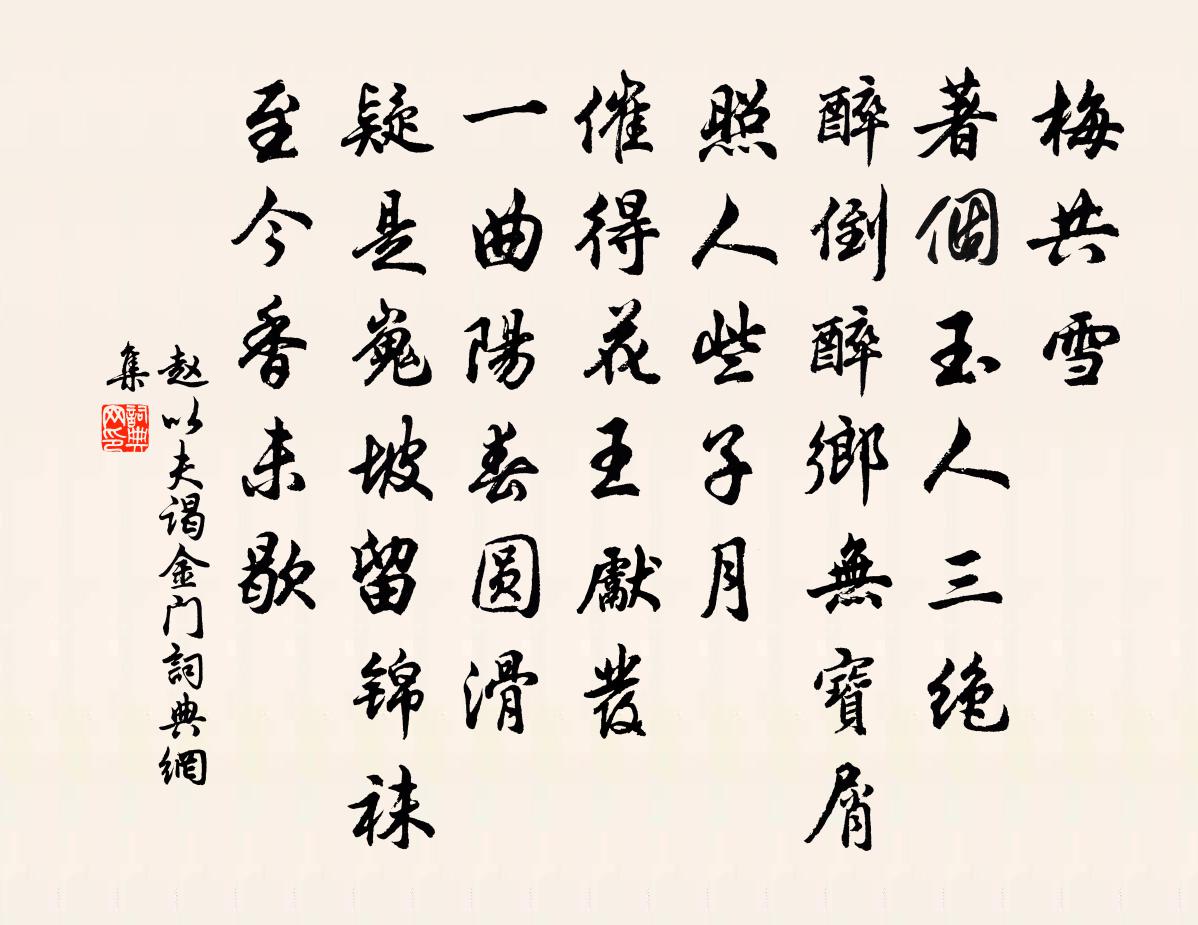 梅共雪
著個玉人三绝
醉倒醉鄉無寶屑
照人些子月
催得花王獻發
一曲陽春圆滑
疑是嵬坡留锦袜
至今香未歇
赵以夫谒金门詞典網
集
詞典网印